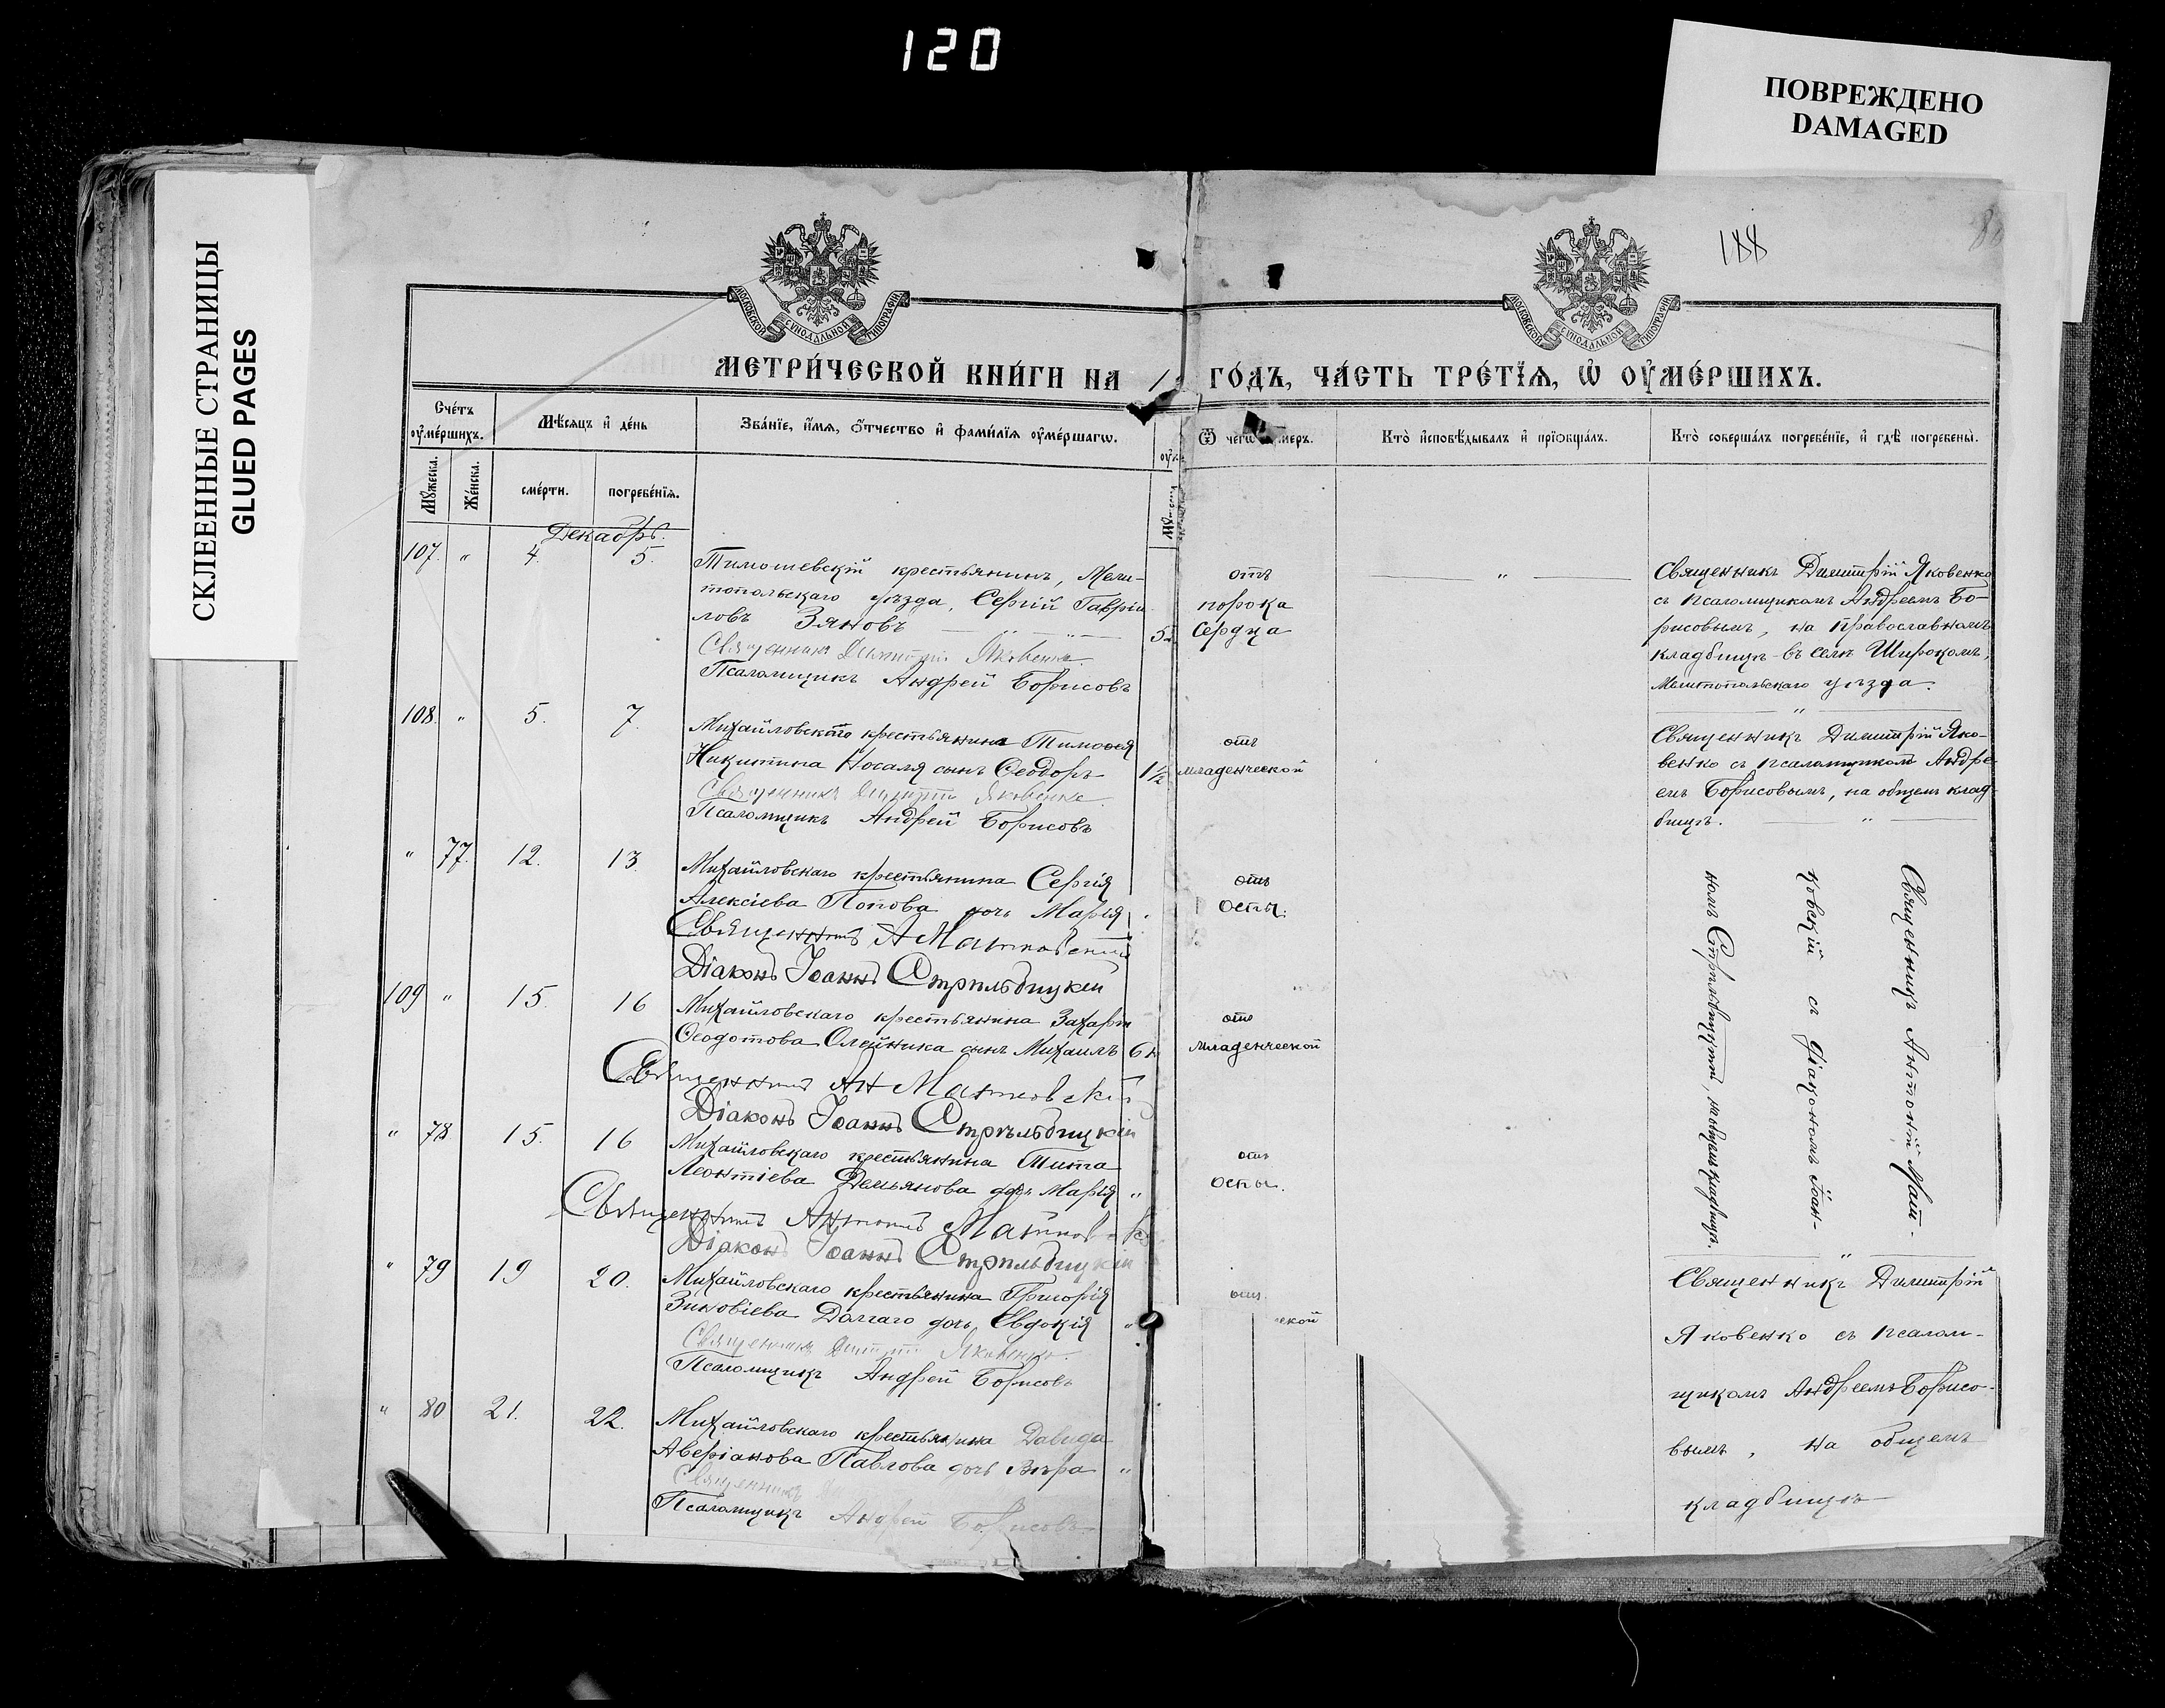 120
ПОВРЕЖДЕНО
DAMAGED
СКЛЕЕННЫЕ СТРАНИЦЫ
GLUED PAGES
188
МОСКОВСКОЙ СѴНОДАЛЬНОЙ ТИПОГРАФІИ
МОСКОВСКОЙ СѴНОДАЛЬНОЙ ТИПОГРАФІИ
МЕТРИ́ЧЕСКОЙ КНИ́ГИ НА 1 ГО́ДЪ, ЧА́СТЬ ТРЕ́ТЇѦ, Ѡ҆ ОУ҆МЕ́РШИХЪ.
Сче́тъ оу҆ме́ршихъ.
Мѣ́сѧцъ и҆ де́нь
Зва́нїе, и҆́мѧ, ѻ҆́тчество и҆ фами́лїѧ оу҆ме́ршагѡ.
Ѿ чегѡ̀ меръ.
Кто̀ и҆сповѣ́дывалъ и҆ прїѻбща́лъ.
Кто̀ соверша́лъ погребе́нїе, и҆ гдѣ̀ погребены̀.
Мꙋ́жеска.
Же́нска.
сме́рти.
погребе́нїѧ.
Декабрь.
107. " 4. 5.
Тимошевскій крестьянинъ, Мели-
топольскаго уѣзда, Сергій Гаврiи
ловъ Зяновъ
Священникъ Димитрій Яковенко.
Псаломщикъ Андрей Борисовъ
отъ
порока
сердца
"
Священникъ Димитрій Яковенко
съ псаломщикомъ Андреемъ Бо-
рисовымъ, на православномъ
кладбищѣ въ селѣ Широкомъ,
Мелитопольскаго уѣзда.
108. " 5. 7.
Михайловскаго крестьянина Тимофея
Никитина Носаля сынъ Ѳеодоръ 1½
Священникъ Димитрій Яковенко.
Псаломщикъ Андрей Борисовъ
отъ
младенческой
Священникъ Димитрій Яко-
венко съ псаломщикомъ Андре
емъ Борисовымъ, на общемъ клад-
бищѣ. "
" 77. 12. 13.
Михайловскаго крестьянина Сергія
Алексіева Попова дочь Марія "
Священникъ А Матковскій
Діаконъ Іоаннъ Стрѣльбицкій
отъ
оспы.
Священникъ Антоній Мат-
ковскій съ діакономъ Іоан-
номъ Стрѣльбицкимъ, на общемъ кладбищѣ.
109 " 15. 16
Михайловскаго крестьянина Захарiи
Ѳеодотова Олейника сынъ Михаилъ 6 н
Священникъ Ан Матковскій
Діаконъ Іоаннъ Стрѣльбицкій
отъ
младенческой
" 78 15. 16
Михайловскаго крестьянина Тита
Леонтіева Демьянова дочь Марія "
Священникъ Антоній Матковск
Діаконъ Іоаннъ Стрѣльбицкій
отъ
оспы.
" 79 19 20.
Михайловскаго крестьянина Григорія
Зиновіева Долгаго дочь Евдокія "
Священникъ Димитрій Яковенко.
Псаломщикъ Андрей Борисовъ
отъ
ской
"
Священникъ Димитрій
Яковенко съ псалом-
щикомъ Андреемъ Борисо-
вымъ, на общемъ
кладбищѣ
" 80 21. 22.
Михайловскаго крестьянина Давида
Аверіанова Павлова дочь Вѣра "
Священникъ
Псаломщикъ Андрей Борисовъ